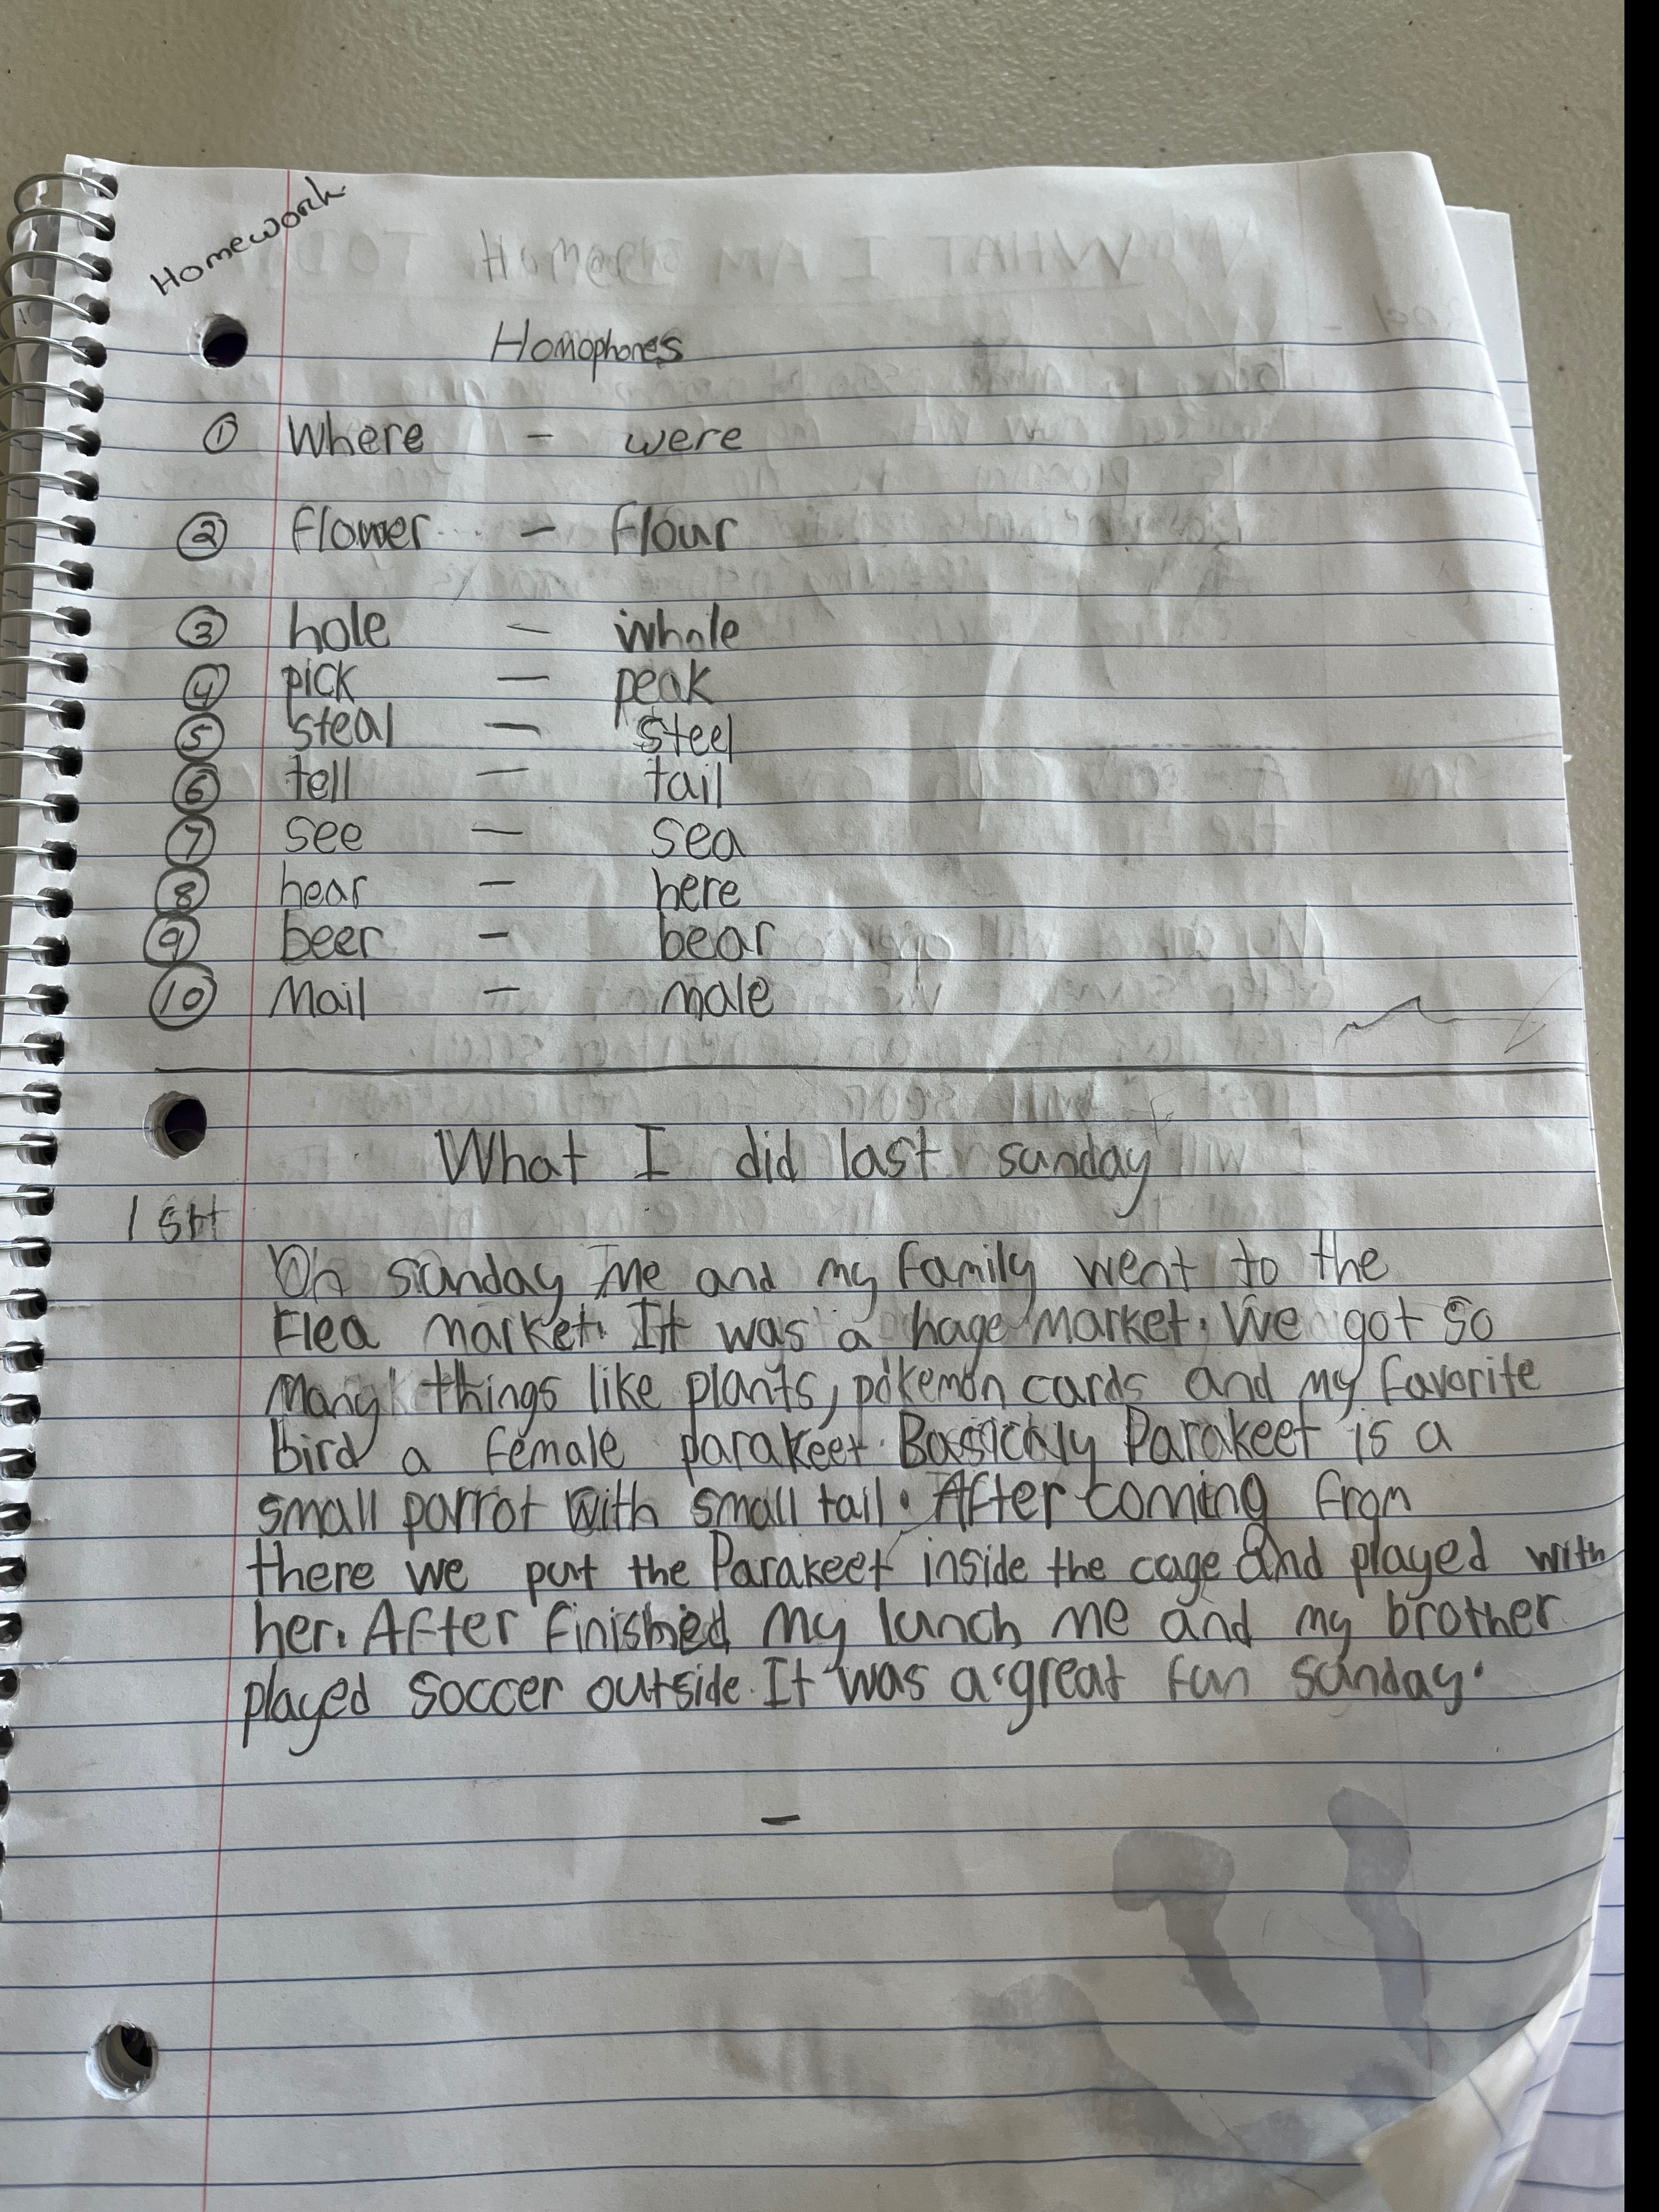 Homework
Homophones
① Where - were
② flower - flour
③ hole - whole
④ pick - peak
⑤ steal - steel
⑥ tell - tail
⑦ see - sea
⑧ hear - here
⑨ beer - bear
⑩ Mail - male
What I did last sunday
1 st
On sunday me and my family went to the
Flea market. It was a huge market. We got so
many things like plants, pokemon cards and my favorite
bird a female parakeet. Parakeet is a
small parrot with small tail. After coming from
there we put the Parakeet inside the cage and played with
her. After finished my lunch me and my brother
played soccer outside. It was a great fun sunday.